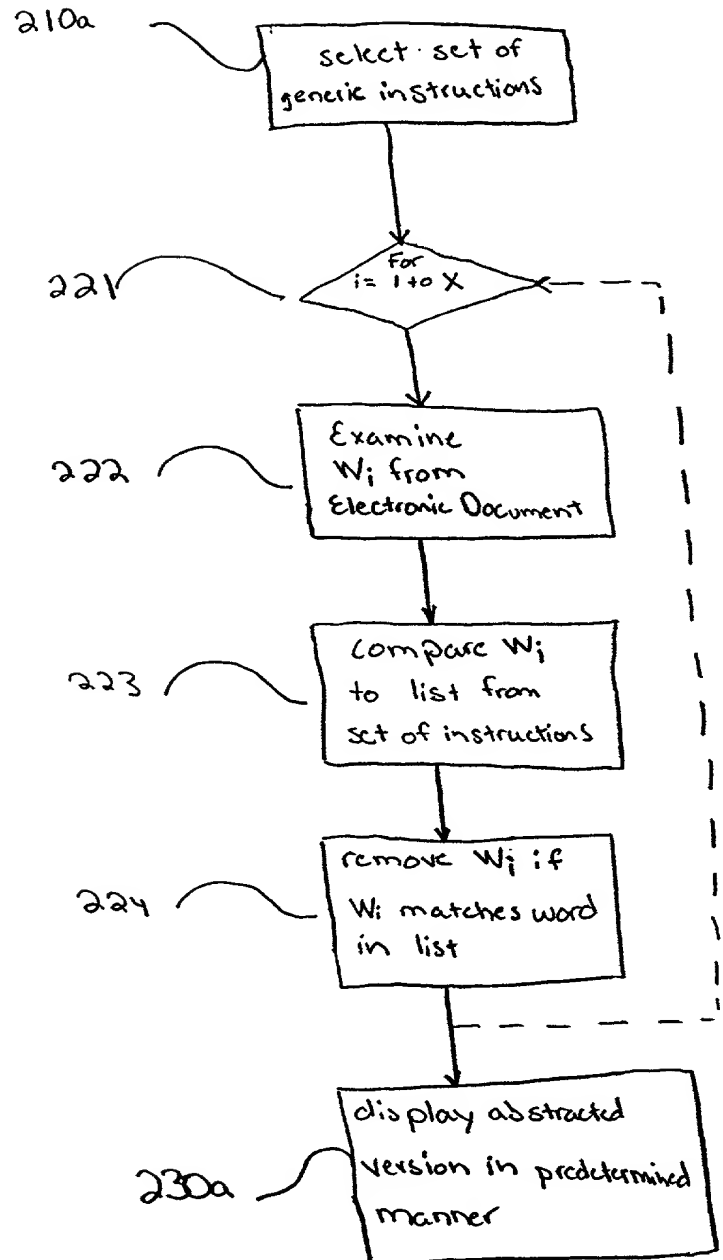 210a
select set of
generic instructions
221
For
i = 1 to X
222
Examine
Wi from
Electronic Document
223
compare Wi
to list from
set of instructions
224
remove Wi if
Wi matches word
in list
230a
display abstracted
version in predetermined
manner